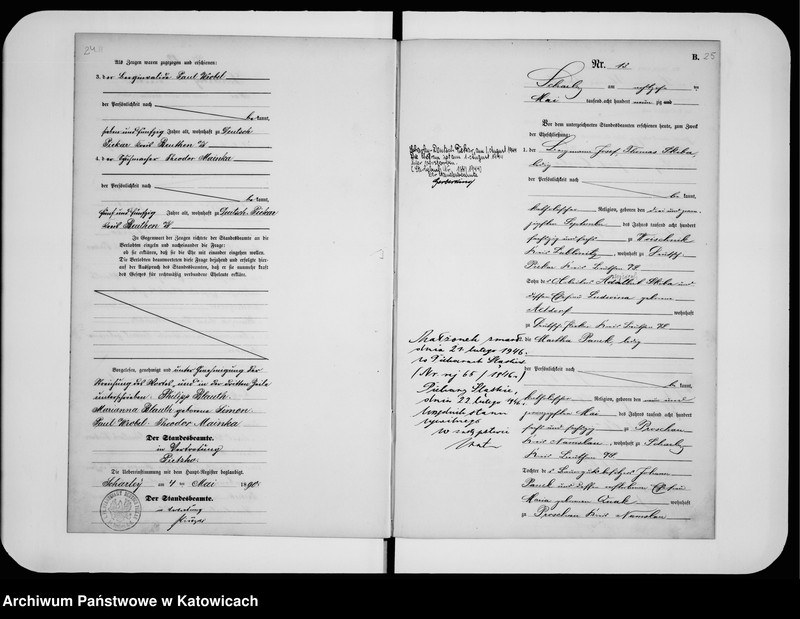 24
Als Zeugen waren zugezogen und erschienen:
3. der Berginvalide Paul Wrobel
der Persönlichkeit nach
be kannt,
sieben und fünfzig Jahre alt, wohnhaft zu Deutsch
Piekar Kreis Beuthen O/S
4. der Theodor Mainka
der Persönlichkeit nach
be kannt,
fünf und fünfzig Jahre alt, wohnhaft Deutsch Piekar
Kreis Beuthen O/S
In Gegenwart der Zeugen richtete der Standesbeamte an die
Verlobten einzeln und nacheinander die Frage:
ob sie erklären, daß sie die Ehe mit einander eingehen wollen.
Die Verlobten beantworteten diese Frage bejahend und erfolgte hier-
auf der Ausspruch des Standesbeamten, daß er sie nunmehr kraft
des Gesetzes für rechtmäßig verbundene Eheleute erkläre.
Vorgelesen, genehmigt und unter Genehmigung der
Streichung des Wortes, und in der dritten Zeile
unterschrieben. Philipp Blauth
Marianna Blauth geborene Simon
Paul Wrobel Theodor Mainka
Der Standesbeamte.
in Vertretung
Pietzko.
Die Uebereinstimmung mit dem Haupt-Register beglaubigt.
Scharley am 4ten Mai 1890.
Der Standesbeamte.
in Vertretung
B. 25
Nr. 12
Scharley am
Mai tausend acht hundert neun zig und
Vor dem unterzeichneten Standesbeamten erschienen heute, zum Zweck
der Eheschließung:
1. der Bergmann Josef Thomas Skiba
ledig
der Persönlichkeit nach
be kannt,
katholischer Religion, geboren den drei und zwan-
zigsten September des Jahres tausend acht hundert
sechszig und sechs zu Woischnik
Kreis Lublinitz, wohnhaft zu Deutsch
Piekar Kreis Beuthen O/S
Sohn des Arbeiters Skiba und
dessen Ehefrau Ludwina geborene
Altdorf wohnhaft
zu Deutsch Piekar Kreis Beuthen O/S
die Martha Panek, ledig
der Persönlichkeit nach
be kannt,
katholischer Religion, geboren den neun und
zwanzigsten Mai des Jahres tausend acht hundert
sechs und sechszig zu Proschau
Kreis Namslau, wohnhaft zu Scharley
Kreis Beuthen O/S
Tochter des Johann
Panek und dessen verstorbenen Ehefrau
geborenen wohnhaft
zu Proschau Kreis Namslau
Małżonek zmarł
dnia 21 lutego 1946.
w Piekarach Śląskich
(Nr. rej 65/1946.)
Piekary Śląskie,
dnia 22 lutego 1946.
Urzędnik stanu
cywilnego
w zastępstwie
Archiwum Państwowe w Katowicach